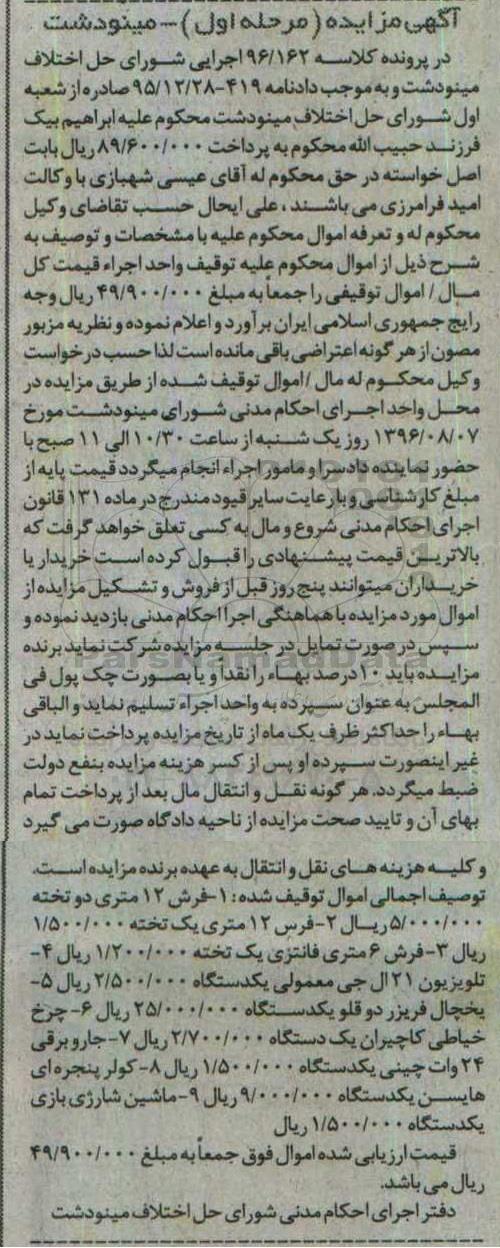 آگهی مزایده (مرحله اول) - مینودشت
در پرونده کلاسه ۹۶/۱۶۲ اجرایی شورای حل اختلاف
مینودشت و به موجب دادنامه ۴۱۹-۹۵/۱۲/۲۸ صادره از شعبه
اول شورای حل اختلاف مینودشت محکوم علیه ابراهیم بیک
فرزند حبیب الله محکوم به پرداخت ۸۹/۶۰۰/۰۰۰ ریال بابت
اصل خواسته در حق محکوم له آقای عیسی شهبازی با وکالت
امید فرامرزی می باشند، علی ایحال حسب تقاضای وکیل
محکوم له و تعرفه اموال محکوم علیه با مشخصات و توصیف به
شرح ذیل از اموال محکوم علیه توقیف واحد اجراء قیمت کل
مال / اموال توقیفی را جمعاً به مبلغ ۴۹/۹۰۰/۰۰۰ ریال وجه
رایج جمهوری اسلامی ایران برآورد و اعلام نموده و نظریه مزبور
مصون از هر گونه اعتراضی باقی مانده است لذا حسب درخواست
وکیل محکوم له مال /اموال توقیف شده از طریق مزایده در
محل واحد اجرای احکام مدنی شورای مینودشت مورخ
۱۳۹۶/۰۸/۰۷ روز یک شنبه از ساعت ۱۰/۳۰ الی ۱۱ صبح با
حضور نماینده دادسرا و مامور اجراء انجام میگردد قیمت پایه از
مبلغ کارشناسی و با رعایت سایر قیود مندرج در ماده ۱۳۱ قانون
اجرای احکام مدنی شروع و مال به کسی تعلق خواهد گرفت که
بالاترین قیمت پیشنهادی را قبول کرده است خریدار یا
خریداران میتوانند پنج روز قبل از فروش و تشکیل مزایده از
اموال مورد مزایده با هماهنگی اجرا احکام مدنی بازدید نموده و
سپس در صورت تمایل در جلسه مزایده شرکت نماید برنده
مزایده باید ۱۰ درصد بهاء را نقدا و یا بصورت چک پول فی
المجلس به عنوان سپرده به واحد اجراء تسلیم نماید و الباقی
بهاء را حداکثر ظرف یک ماه از تاریخ مزایده پرداخت نماید در
غیر اینصورت سپرده او پس از کسر هزینه مزایده بنفع دولت
ضبط میگردد. هر گونه نقل و انتقال مال بعد از پرداخت تمام
بهای آن و تایید صحت مزایده از ناحیه دادگاه صورت می گیرد
و کلیه هزینه های نقل و انتقال به عهده برنده مزایده است.
توصیف اجمالی اموال توقیف شده: ۱-فرش ۱۲ متری دو تخته
۵/۰۰۰/۰۰۰ ریال ۲-فرس ۱۲ متری یک تخته ۱/۵۰۰/۰۰۰
ریال ۳-فرش ۶ متری فانتزی یک تخته ۱/۲۰۰/۰۰۰ ریال ۴-
تلویزیون ۲۱ ال جی معمولی یکدستگاه ۲/۵۰۰/۰۰۰ ریال ۵-
یخچال فریزر دو قلو یکدستگاه ۲۵/۰۰۰/۰۰۰ ریال ۶- چرخ
خیاطی کاچیران یک دستگاه ۲/۷۰۰/۰۰۰ ریال ۷-جارو برقی
۲۴ وات چینی یکدستگاه ۱/۵۰۰/۰۰۰ ریال ۸- کولر پنجره ای
هایسن یکدستگاه ۹/۰۰۰/۰۰۰ ریال ۹-ماشین شارژی بازی
یکدستگاه ۱/۵۰۰/۰۰۰ ریال
قیمت ارزیابی شده اموال فوق جمعاً به مبلغ ۴۹/۹۰۰/۰۰۰
ریال می باشد.
دفتر اجرای احکام مدنی شورای حل اختلاف مینودشت